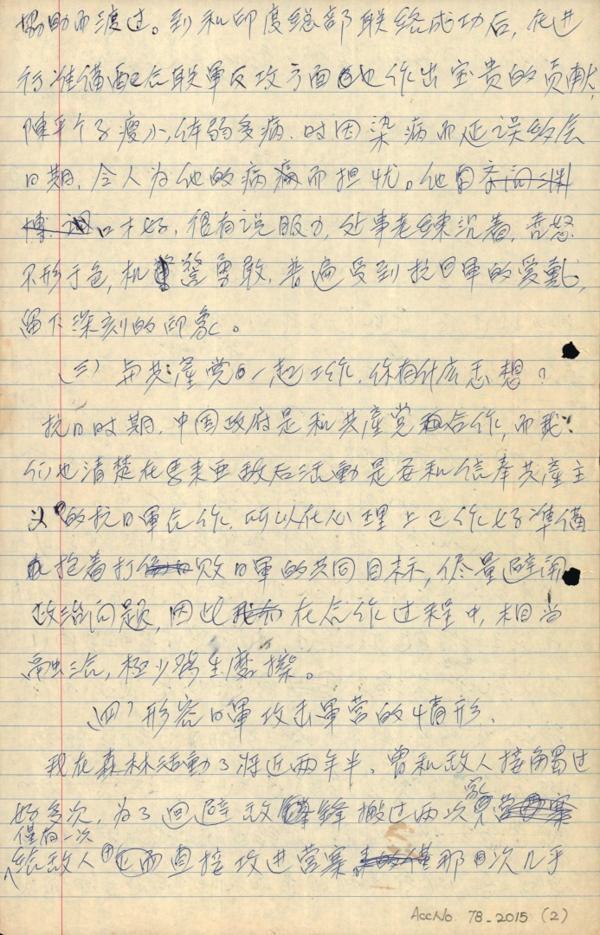 协助而渡过。到和印度总部联络成功后,在进
行准备配合联军反攻方面也作出宝贵的贡献,
陳平个子瘦小,体弱多病,时因染病而延误约会
日期,令人为他的病痛而担忧。他
口才好,很有说服力,处事老练沉着,喜怒
不形于色,机警勇敢,普遍受到抗日軍的爱戴,
留下深刻的印象。
(三)与共產党一起工作,你有什庅思想?
抗日时期,中国政府是和共產党合作,而我
们也清楚在馬来亜敌后活動是要和信奉共產主
义的抗日軍合作,所以在心理上已作好準備
抱着打败日軍的共同目标,尽量避開
政治问题,因此在合作过程中,相当
融洽,极少發生磨擦。
(四)形容日軍攻击軍营的情形.
我在森林活動了将近两年半,曾和敌人接觸过
好多次,为了回避敌鋒搬过两次營寨
僅有一次
给敌人正面直接攻进营寨那次几乎
AccNo 78-2015 (2)